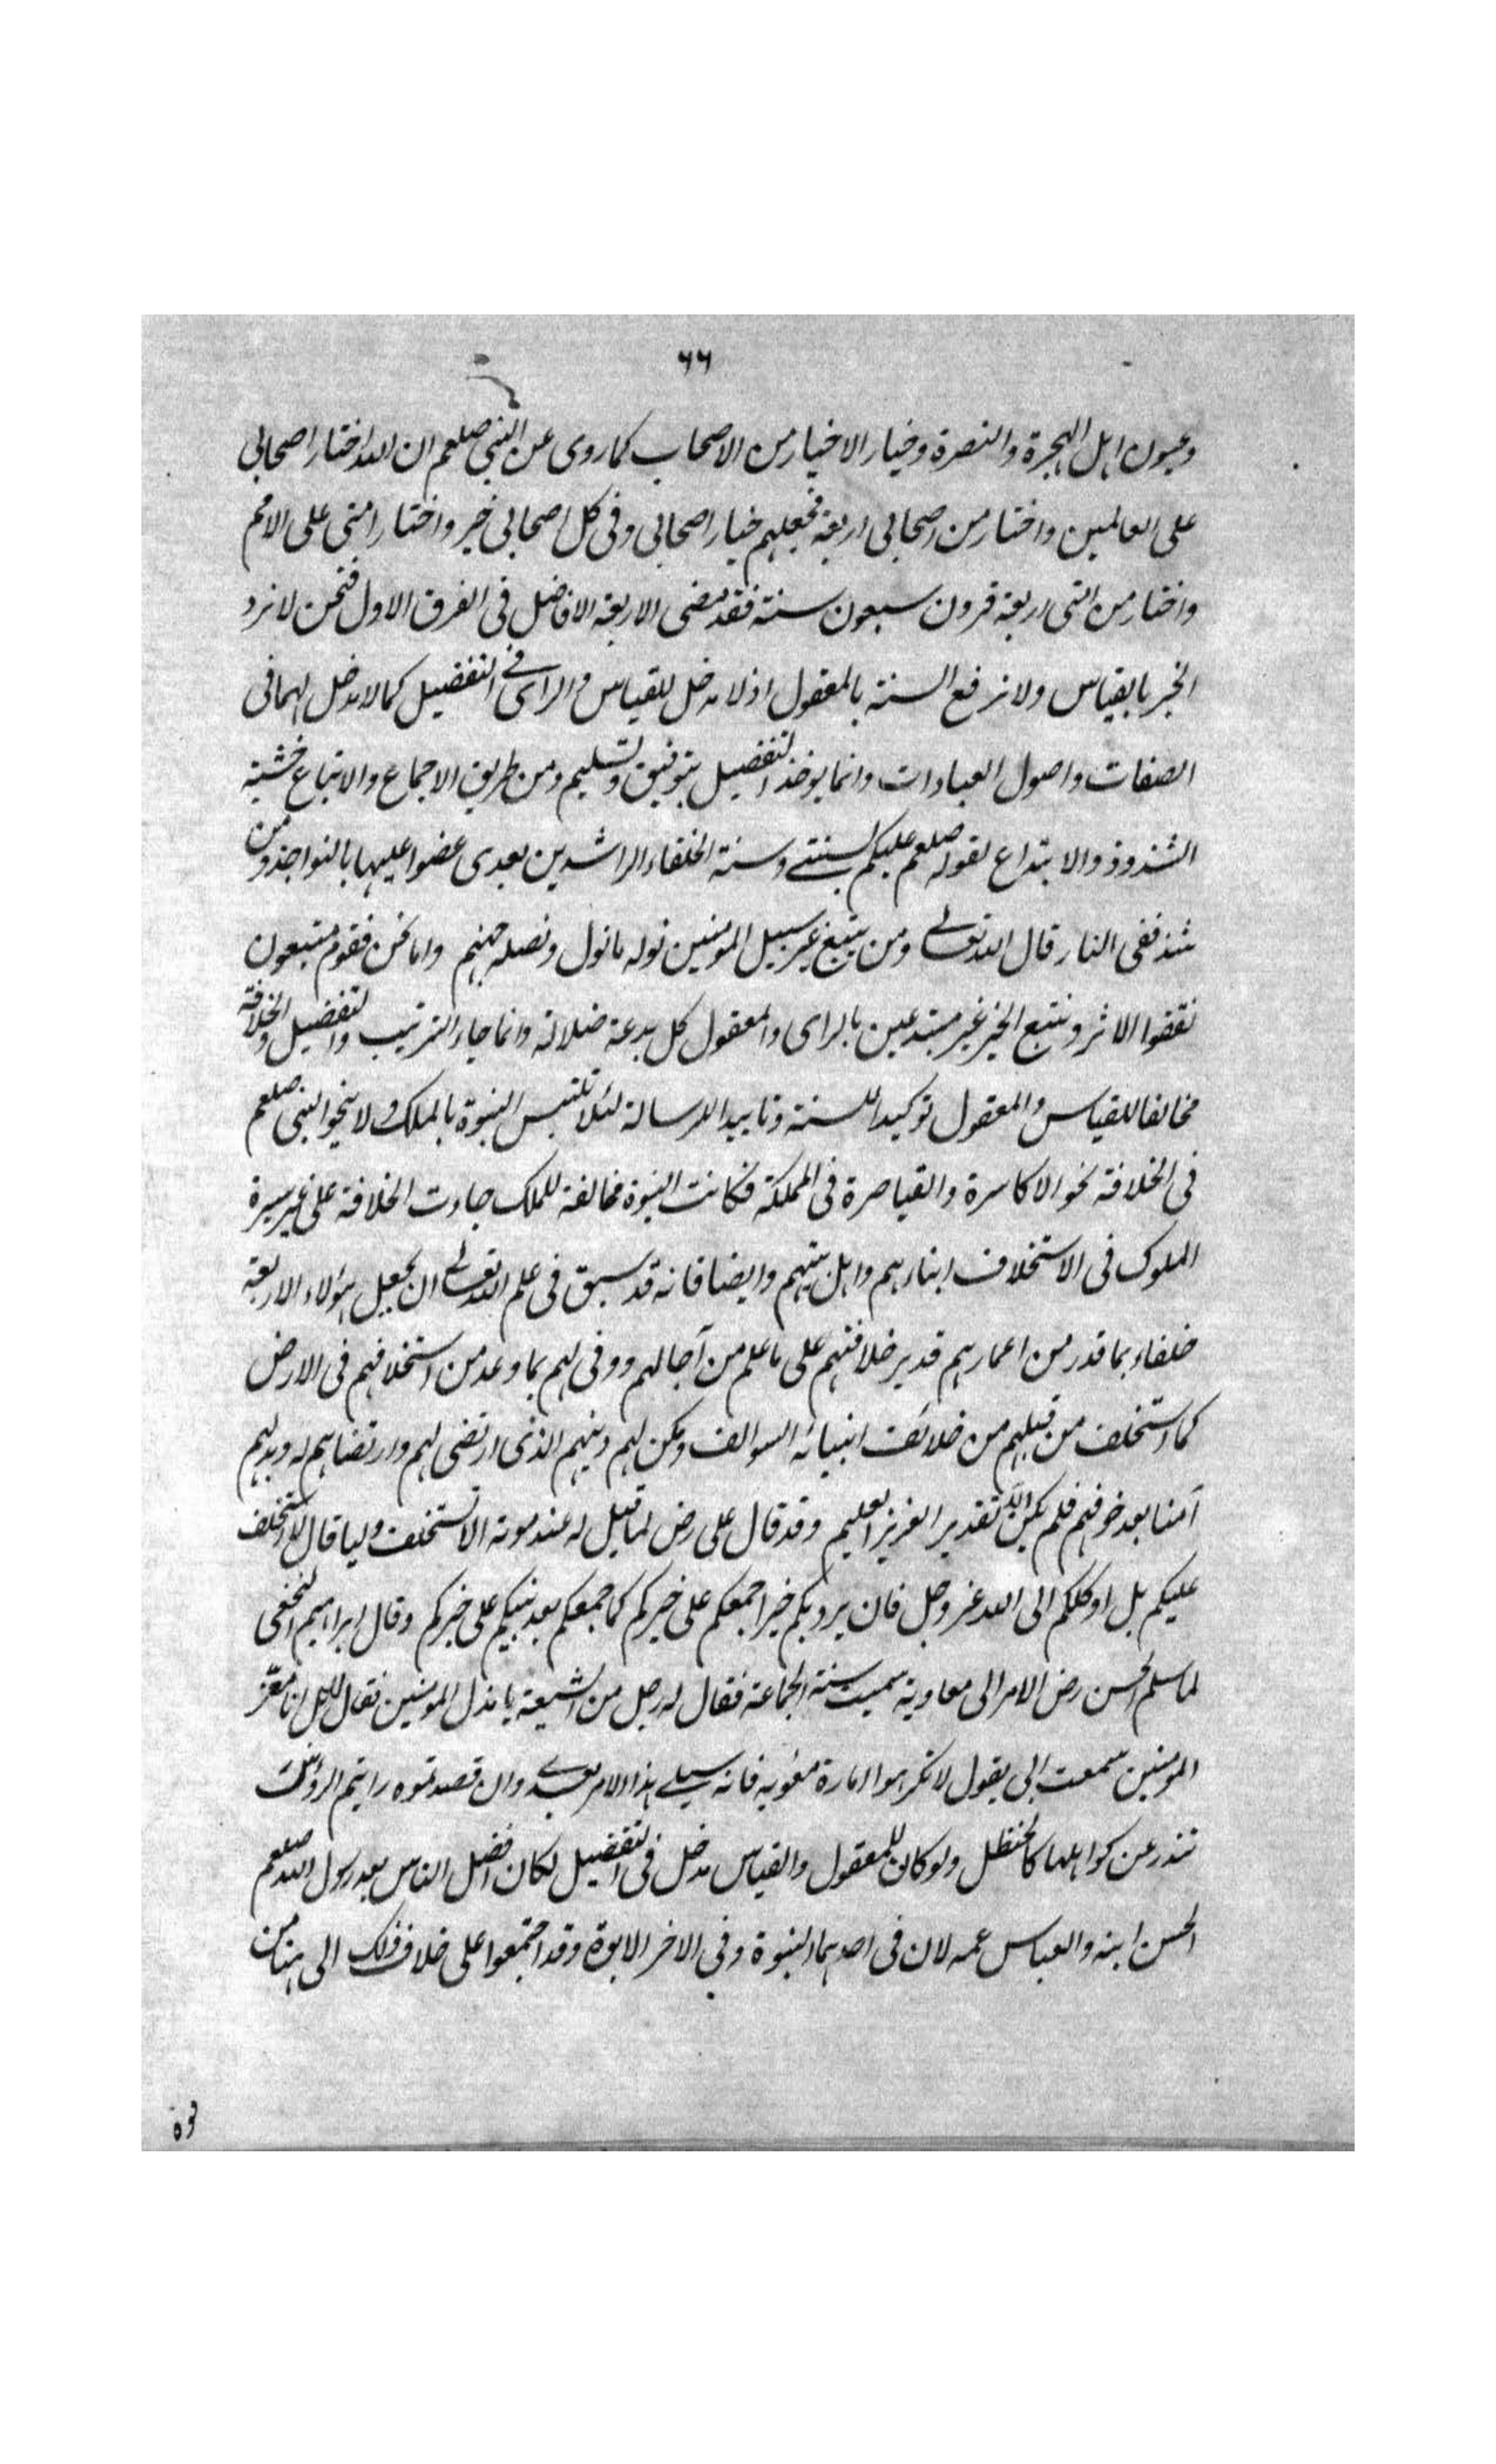 ٦٦
وعيون اهل الهجرة والنصرة وخيار الاخيار من الاصحاب كما روى عن النبي صلعم ان الله اختار اصحابى
على العالمين واختار من اصحابى اربعة فجعلهم خيار اصحابى وفى كل اصحابى خير واختار امتى على الامم
واختار من امتى اربعة قرون سبعون سنة فقد مضى الاربعة الافاضل فى القرن الاول فنحن لا نرد
الخبر بالقياس ولا نرفع السنة بالمعقول اذ لا مدخل للقياس والراى فى التفضيل كما لا مدخل لهما فى
الصفات واصول العبادات وانما يوخذ التفضيل بتوفيق وتسليم ومن طريق الاجماع والاتباع خشية
الشذوذ والابتداع لقوله صلعم عليكم بسنتى وسنة الخلفاء الراشدين بعدى عضوا عليها بالنواجذ ومن
شذ ففى النار قال الله تعالى ومن يتبع غير سبيل المومنين نوله ما تولى ونصله جهنم واما نحن فقوم متبعون
نقفوا الاثر ونتبع الخبر غير مبتدعين بالراى والمعقول كل بدعة ضلالة وانما جاء الترتيب والتفضيل والخلافة
مخالفا للقياس والمعقول توكيدا للسنة وتاييدا للرسالة لئلا تلتبس النبوة بالملك ولا ينحو النبى صلعم
فى الخلافة نحو الاكاسرة والقياصرة فى المملكة فكانت النبوة مخالفة للملك جاءت الخلافة على غير سيرة
الملوك فى الاستخلاف ابناءهم واهل بيتهم وايضا فانه قد سبق فى علم الله تعالى ان يجعل هؤلاء الاربعة
خلفاء بما قدر من اعمارهم قدير خلافتهم على ما علم من آجالهم ووفى لهم بما وعد من استخلافهم فى الارض
كما استخلف من قبلهم من خلائف انبيائه السوالف ومكن لهم دينهم الذى ارتضى لهم وارتضاهم له وبدلهم
آمنا بعد خوفهم فلم يكن الا تقدير العزيز العليم وقد قال على رض لما قيل له عند موته الا تستخلف وليا قال لا استخلف
عليكم بل اوكلكم الى الله عز وجل فان يرد بكم خيرا جمعكم على خيركم كما جمعكم بعد نبيكم على خيركم وقال ابراهيم النخعى
لما سلم الحسن رض الامر الى معاوية سميت سنة الجماعة فقال له رجل من الشيعة يا مذل المومنين فقال بل انا معز
المومنين سمعت ابى يقول لا تكرهوا امارة معوية فانه سيلى هذا الامر بعدى وان فقدتموه رايتم الرؤس
تندر عن كواهلها كالحنظل ولو كان للمعقول والقياس مدخل فى التفضيل لكان افضل الناس بعد رسول الله صلعم
الحسن ابنه والعباس عمه لان فى احدهما البنوة وفى الاخر الابوة وقد اجتمعوا على خلاف ذلك الى هنا من